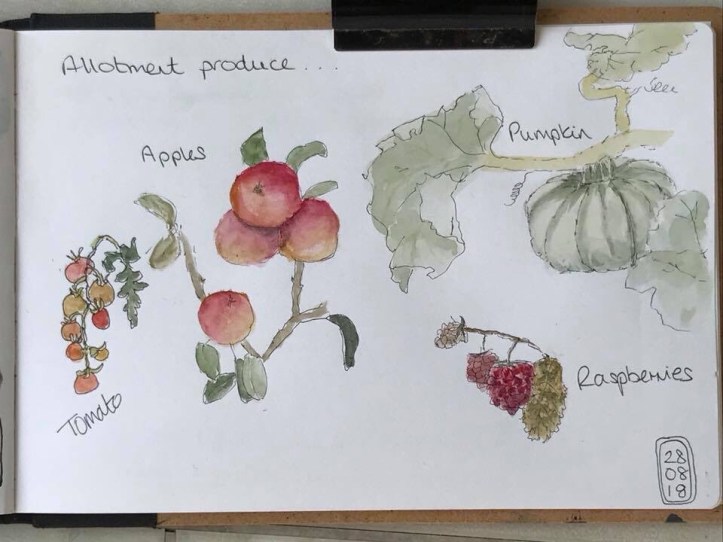 Allotment produce....
Apples
Pumpkin
Tomato
Raspberries
28
08
18